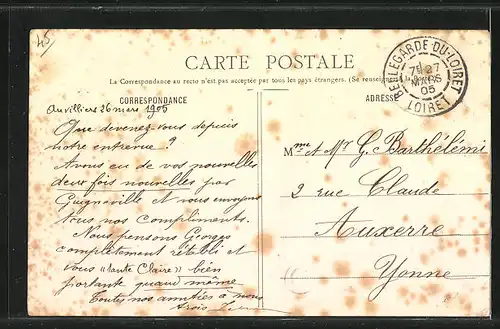 45
CARTE POSTALE
La Correspondance au recto n'est pas acceptée par tous les pays étrangers. (Se renseigner à la Poste)
CORRESPONDANCE
ADRESSE
BELLEGARDE-DU-LOIRET
7E 27
MARS
05
LOIRET
Auvilliers 26 mars 1905
Que devenez-vous depuis
notre entrevue ?
Avons eu de vos nouvelles
deux fois nouvelles par
Guigneville et nous envoyons
tous nos compliments.
Nous pensons Georges
complètement rétabli et
vous "tante Claire" bien
portante quand même
Toutes nos amitiés à nous
Mme et Mr G. Barthélémi
2 rue Claude
Auxerre
Yonne